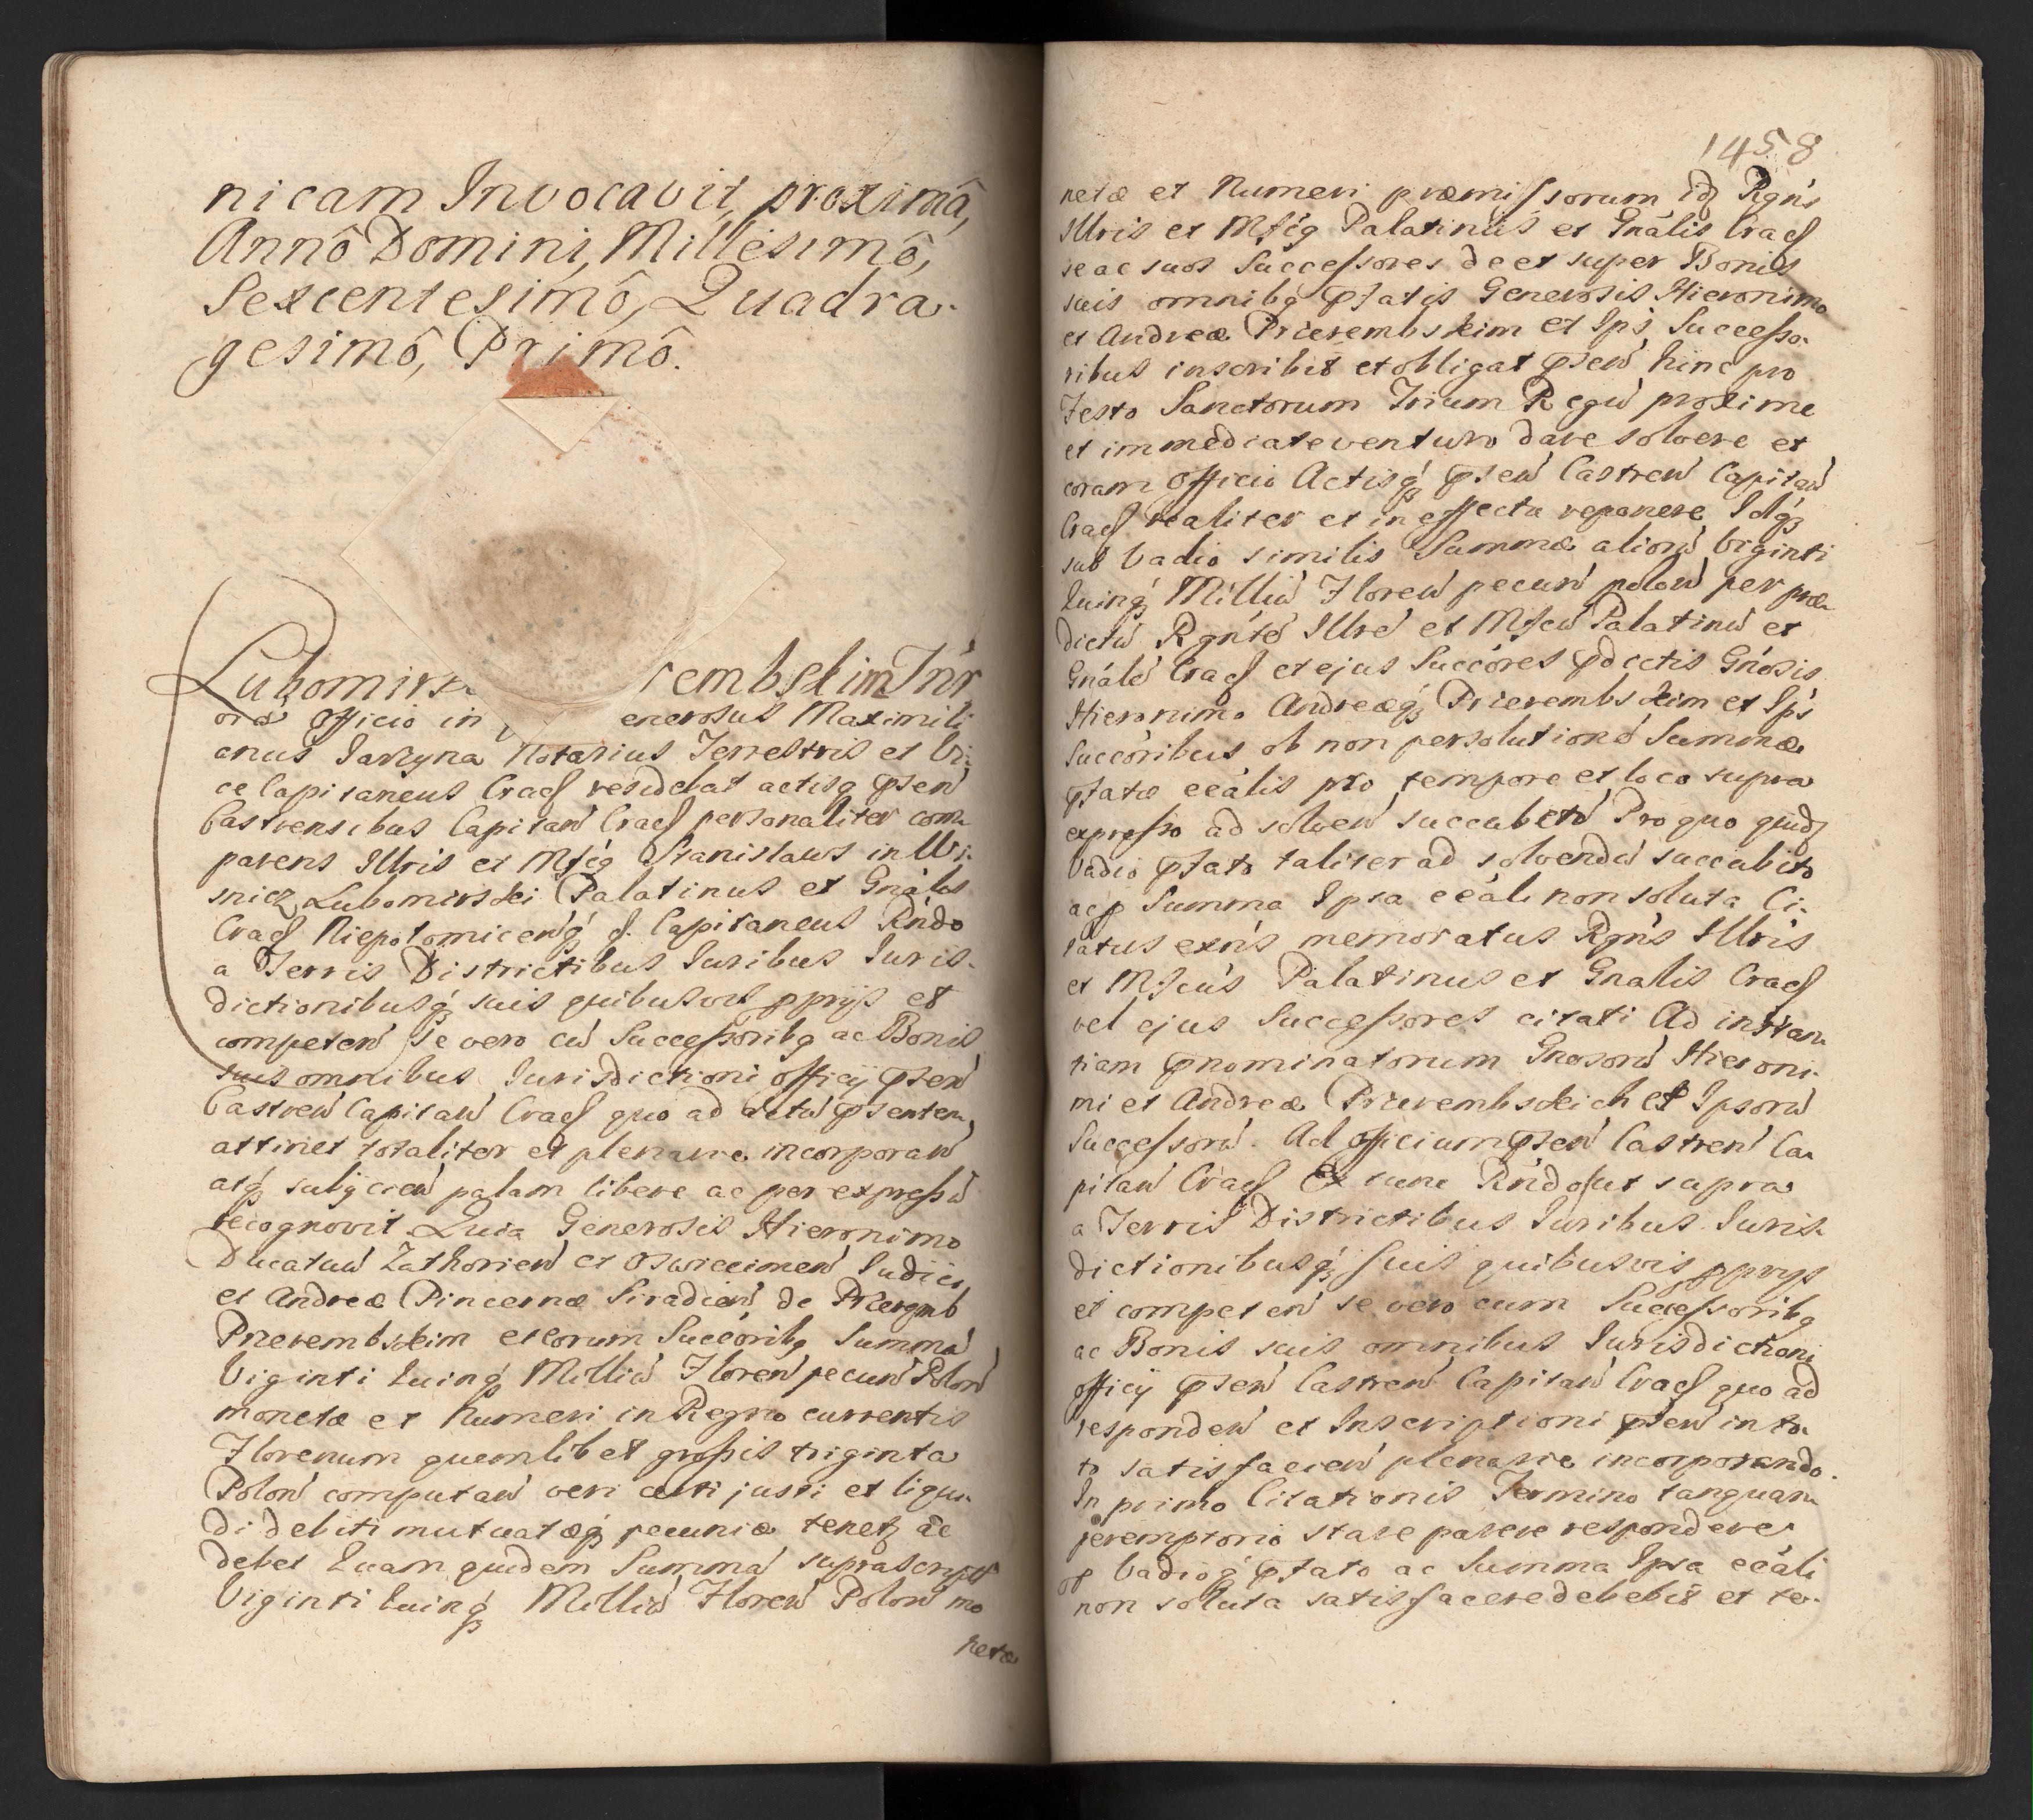 nicam Invocavit, proximâ,
Annô Domini, Millesimô,
Sexcentesimô, Quadra-
gesimô, Primô.
Lubomirs embskim Inr
officio in enerosus Maximili
anus Jarzyna Notarius Terrestris et Vi-
ce Capitaneus Crac residebat actisq psen
Castrensibus Capitan Crac personaliter com-
parens Illris et Mfcg Stanislaus in Wi-
snicz Lubomirski Palatinus et Gnalis
Crac Niepolomicenq s. Capitaneus Rndo
a Terris Districtibus Juribus Juris-
dictionibusq suis quibusvis pprijs et
competen se vero cu Successoribq ac Bonis
suis omnibus Jurisdictioni officij psen
Castren Capitan Crac quo ad actu psentem
attinet totaliter et plenarie incorporan
atq subijcien palam libere ac per expressu
recognovit Quia Generosis Hieronimo
Ducatuu Zathorien et Oswiecimen Judici
et Andreæ Pincernæ Siradien de Przeremb
Przerembskim et eorum Succoribq Summa
Viginti Quinq Milliu Floren pecun Polon
monetæ et Numeri in Regno currentis
Florenum quemlibet grossis triginta
Polon computan veri certi justi et liqui-
di debiti mutuatæq pecuniæ tenetq ac
debet Quam quidem Summa suprascript
Viginti Quinq Milliu Floren Polon mo
netæ
1458
netæ et Numeri præmissorum idq Rgns
Illris et Mfcg Palatinus et Gnalis Crac
se ac suos Successores de et super Bonis
suis omnibq pfatis Generosis Hieronimo
et Andreæ Przerembskim et Ips Successo-
ribus inscribit et obligat psen hinc pro
Festo Sanctorum Trium Regu proxime
et immediate venturo dare solvere et
coram officio Actisq psen Castren Capitan
Crac realiter et in effectu reponere Idq
sub Vadio similis Summæ alioru Viginti
Quinq Milliu Floren pecun polon per præ-
dictu Rgnte Illre et Mfcu Palatinu et
Gnale Crac et ejus Succores pdcctis Gnosis
Hieronimo Andreæq Przerembskim et Ips
Succoribus ob non persolutione Summæ
pfatæ ccalis pro tempore et loco supra
expresso ad solven succubito Pro quo quidq
Vadio pfato taliter ad solvendu succubito
acp Summa Ipsa ccali non soluta Ci-
tatus extns memoratus Rgns Illris
et Mfcus Palatinus et Gnalis Crac
vel ejus Successores citati Ad instan-
tiam pnominatorum Gnosoru Hieroni-
mi et Andreæ Przerembskich et Ipsoru
Successoru. Ad officium psen Castren Ca-
pitan Crac Ex tunc Rndo ut supra
a Terris Districtibus Juribus Juris-
dictionibusq suis quibusvis pprijs
et competen se vero cum Successoribq
ac Bonis suis omnibus Jurisdictioni
officij psen Castren Capitan Crac quo ad
responden et Inscriptioni psen in to-
to satisfacien plenarie incorporando.
In primo Citationis Termino tanquam
peremptorio stare parere respondere
op Vadioq pfato ac Summa Ipsa ccali
non soluta satisfacere debebit et te-